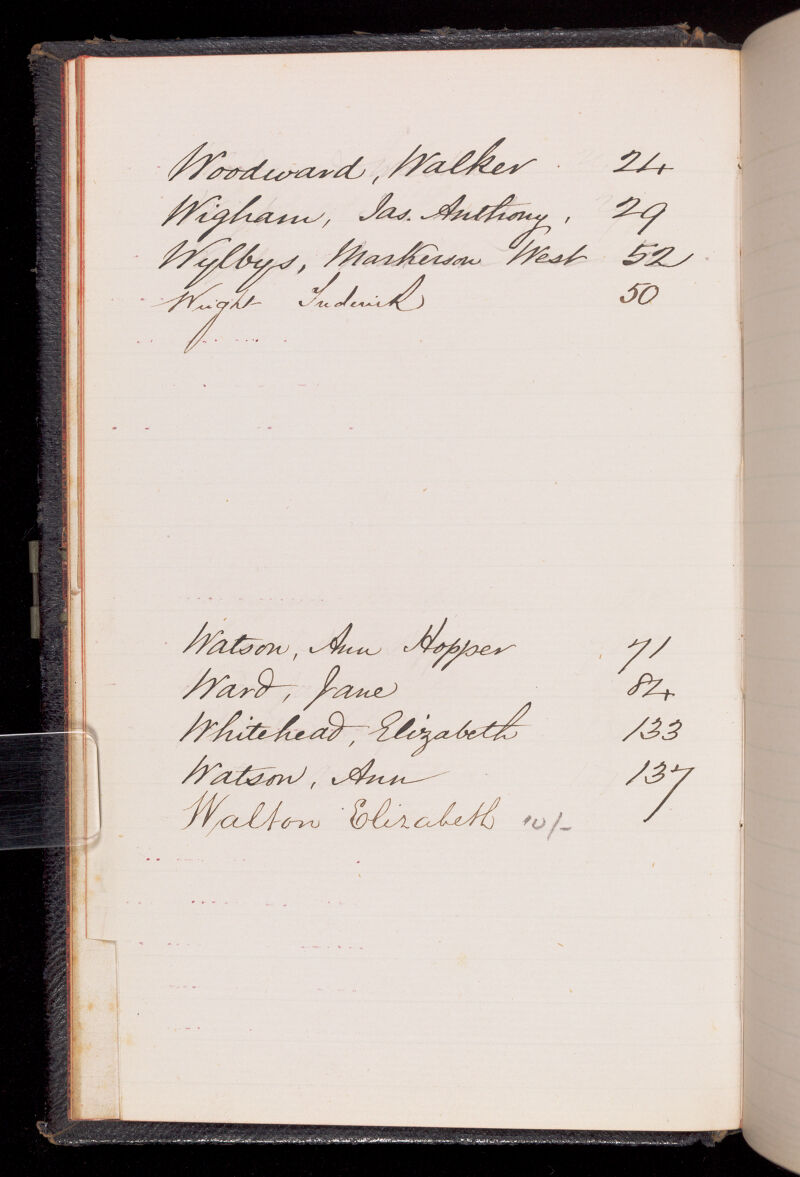 Woodward, Walker 24
Wigham, Jas. Anthony, 29
Wylbys, Markerson West 52
Wright Frederick 50
Watson, Ann Hopper 71
Ward, Jane 84
Whitehead, Elizabeth 133
Watson, Ann 137
Walton Elizabeth 10/-